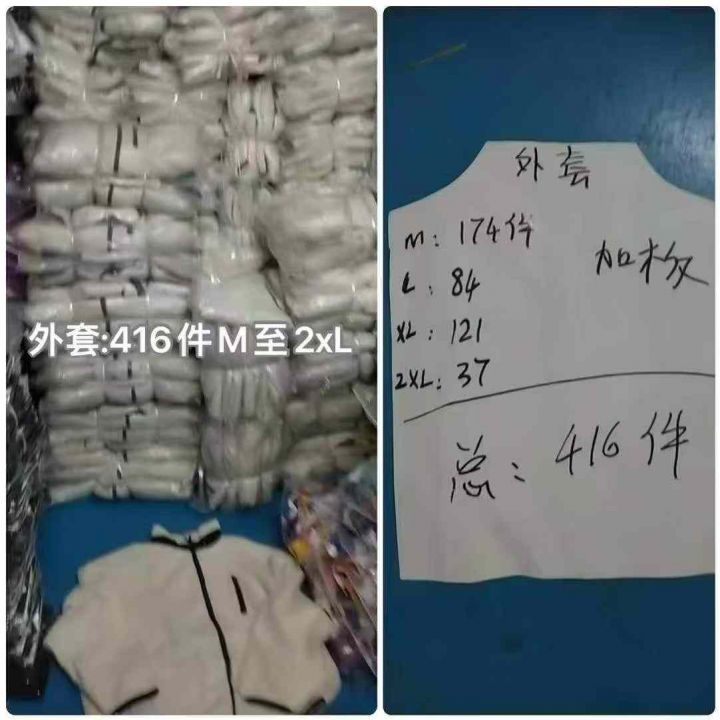 外套:416件M至2xL
外套
M: 174件
加板
L: 84
XL: 121
2XL: 37
总: 416件